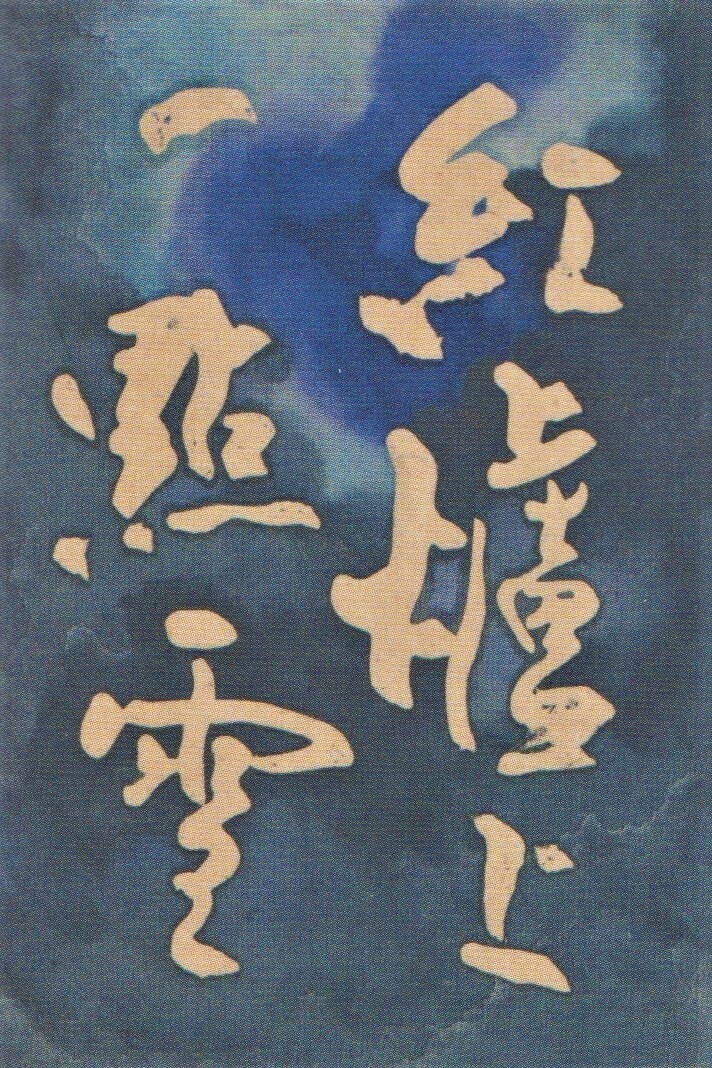 紅爐上
一點雪